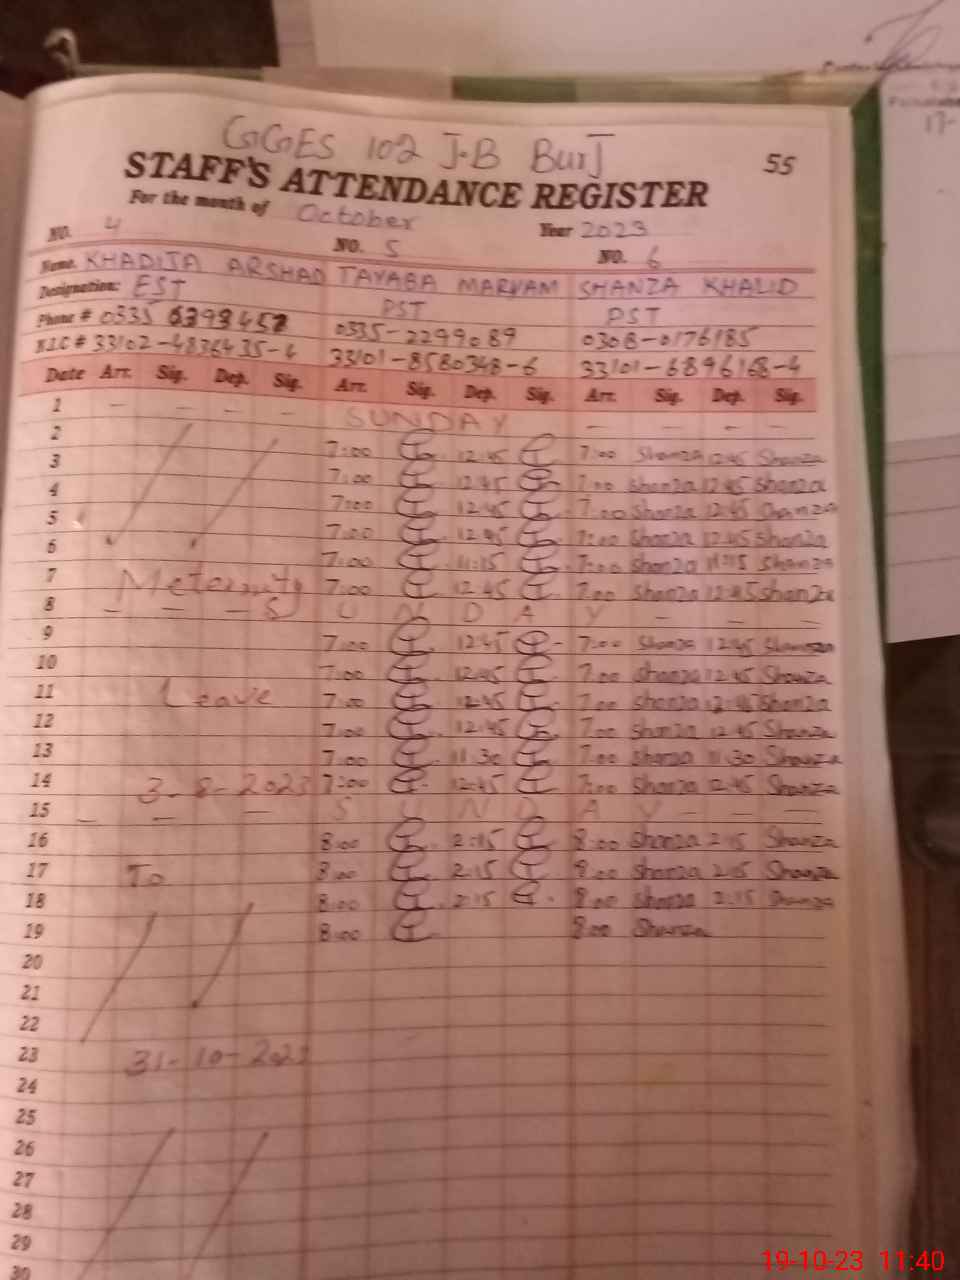 GGES 102 J.B Burj
STAFF'S ATTENDANCE REGISTER 55
For the month of October Year 2023
NO. 4 NO. 5 NO. 6
Name. KHADIJA ARSHAD TAYABA MARYAM SHANZA KHALID
Designation: EST PST PST
Phone # 0335 6393457 0335-2299089 0308-0176185
N.I.C # 33102-4836435-4 33101-8580348-6 33101-6896168-4
Date Arr. Sig. Dep. Sig. Arr. Sig. Dep. Sig. Arr. Sig. Dep. Sig.
1 — — — — SUNDAY — — — —
2 7:00 12:45 7:00 Shanza 12:45 Shanza
3 7:00 12:45 7:00 Shanza 12:45 Shanza
4 7:00 12:45 7:00 Shanza 12:45 Shanza
5 7:00 12:45 7:00 Shanza 12:45 Shanza
6 7:00 11:15 7:00 Shanza 11:15 Shanza
7 Meternity 7:00 12:45 7:00 Shanza 12:45 Shanza
8 — — — S U N D A Y — — —
9 7:00 12:45 7:00 Shanza 12:45 Shanza
10 7:00 12:45 7:00 Shanza 12:45 Shanza
11 Leave 7:00 12:45 7:00 Shanza 12:45 Shanza
12 7:00 12:45 7:00 Shanza 12:45 Shanza
13 7:00 11:30 7:00 Shanza 11:30 Shanza
14 3-8-2023 7:00 12:45 7:00 Shanza 12:45 Shanza
15 — — — S U N D A Y — — —
16 8:00 2:15 8:00 Shanza 2:15 Shanza
17 To 8:00 2:15 8:00 Shanza 2:15 Shanza
18 8:00 2:15 8:00 Shanza 2:15 Shanza
19 8:00 8:00 Shanza
20
21
22
23 31-10-2023
24
25
26
27
28
29
30
19-10-23 11:40